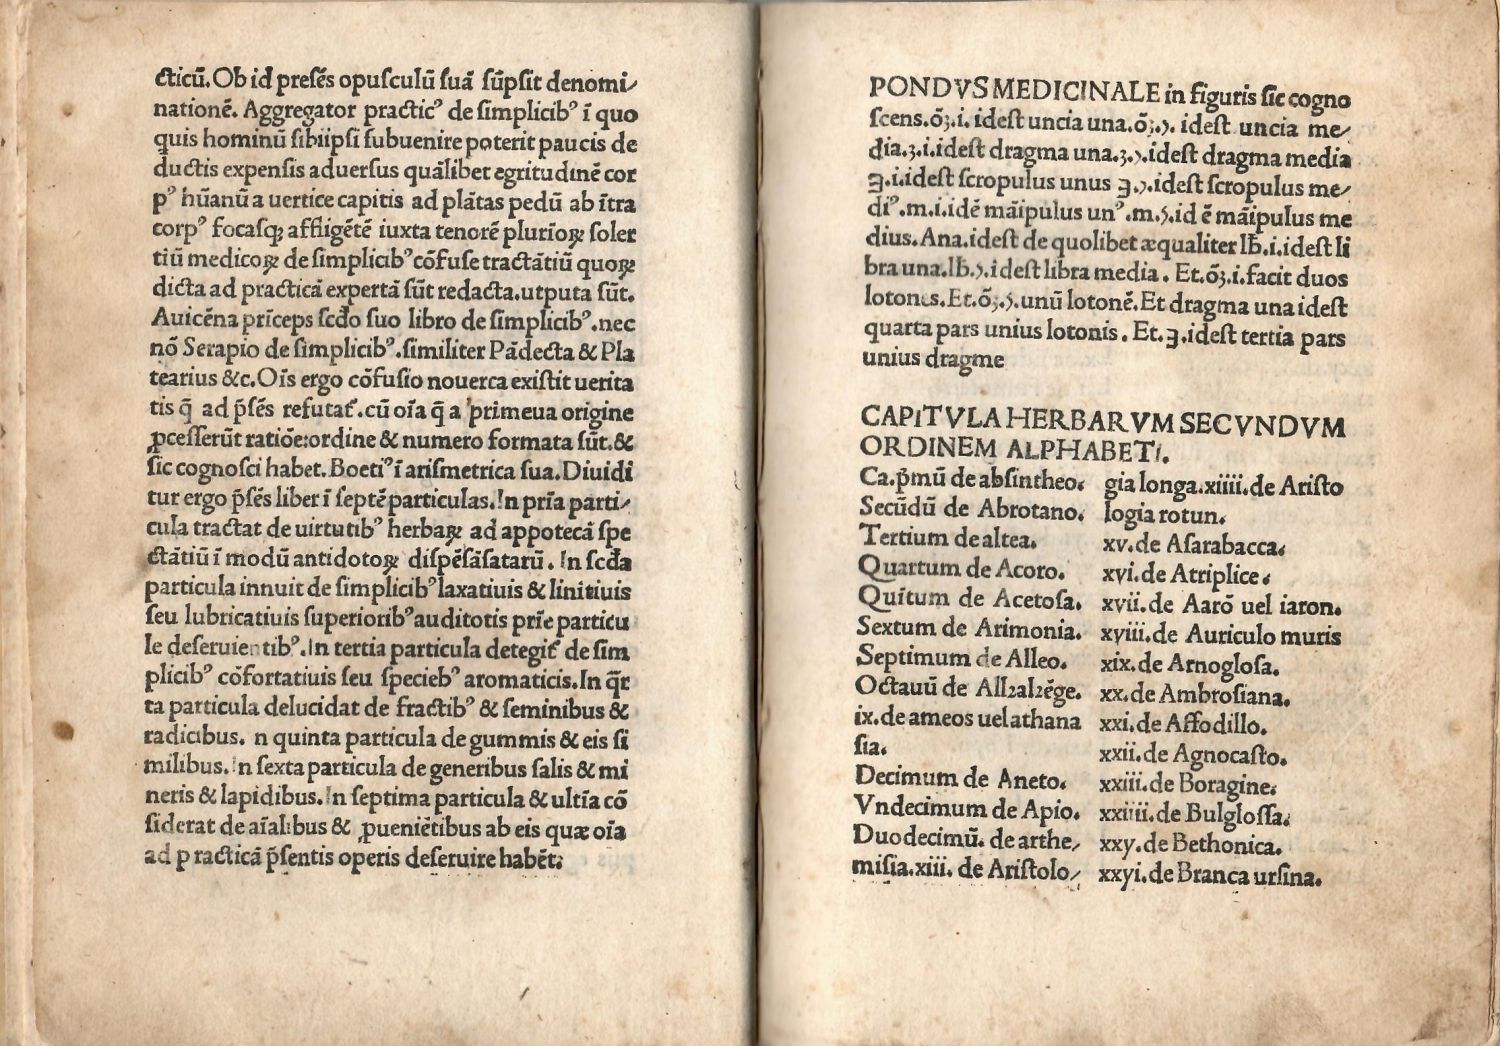 cticū. Ob id presēs opusculū suā sūpsit denomi/
nationē. Aggregator practicꝰ de simplicibꝰ ī quo
quis hominū sibiipsi subuenire poterit paucis de
ductis expensis aduersus quālibet egritudinē cor
pꝰ hūanū a uertice capitis ad plātas pedū ab ītra
corpꝰ focasqꝫ affligētē iuxta tenorē plurīoꝝ soler
tiū medicoꝝ de simplicibꝰ cōfuse tractātiū quoꝝ
dicta ad practicā expertā sūt redacta. utputa sūt.
Auicēna prīceps scdo suo libro de simplicibꝰ. nec
nō Serapio de simplicibꝰ. similiter Pādecta & Pla
tearius &c. Oīs ergo cōfusio nouerca existit uerita
tis q̄ ad p̄sēs refutat̄. cū oīa q̄ a primeua origine
ꝓcesserūt ratiōe: ordine & numero formata sūt. &
sic cognosci habet. Boetiꝰ ī arismetrica sua. Diuidi
tur ergo p̄sēs liber ī septē particulas. In prīa parti/
cula tractat de uirtutibꝰ herbaꝝ ad appotecā spe
ctātiū ī modū antidotoꝝ dispēsāsatarū. In scda
particula innuit de simplicibꝰ laxatiuis & linitiuis
seu lubricatiuis superioribꝰ auditotis prīe particu
le deseruientibꝰ. In tertia particula detegit̄ de sim
plicibꝰ cōfortatiuis seu speciebꝰ aromaticis. In q̄r
ta particula delucidat de fractibꝰ & seminibus &
radicibus. n quinta particula de gummis & eis si
milibus. In sexta particula de generibus salis & mi
neris & lapidibus. In septima particula & ultīa cō
siderat de aīalibus & ꝓueniētibus ab eis quæ oīa
ad practicā p̄sentis operis deseruire habēt.
PONDVS MEDICINALE in figuris sic cogno
scens. ō̄ʒ. i. idest uncia una. ōʒ. ʒ. idest uncia me/
dia. ʒ. i. idest dragma una. ʒ. ʒ. idest dragma media
℈. i. idest scropulus unus ℈. ʒ. idest scropulus me/
diꝰ. m. i. idē māipulus unꝰ. m. ʒ. id ē māipulus me
dius. Ana. idest de quolibet æqualiter lb. i. idest li
bra una. lb. ʒ. idest libra media. Et. ōʒ. i. facit duos
lotones. Et. ōʒ. ʒ. unū lotonē. Et dragma una idest
quarta pars unius lotonis. Et. ℈. idest tertia pars
unius dragme
CAPITVLA HERBARVM SECVNDVM
ORDINEM ALPHABETI.
Ca. p̄mū de absintheo.
Secūdū de Abrotano.
Tertium de altea.
Quartum de Acoro.
Quītum de Acetosa.
Sextum de Arimonia.
Septimum de Alleo.
Octauū de Alhalzēge.
ix. de ameos uel athana
sia.
Decimum de Aneto.
Vndecimum de Apio.
Duodecimū. de arthe/
misia. xiii. de Aristolo/
gia longa. xiiii. de Aristo
logia rotun.
xv. de Asarabacca.
xvi. de Atriplice.
xvii. de Aarō uel iaron.
xviii. de Auriculo muris
xix. de Arnoglosa.
xx. de Ambrosiana.
xxi. de Affodillo.
xxii. de Agnocasto.
xxiii. de Boragine.
xxiiii. de Bulglossa.
xxv. de Bethonica.
xxvi. de Branca ursina.